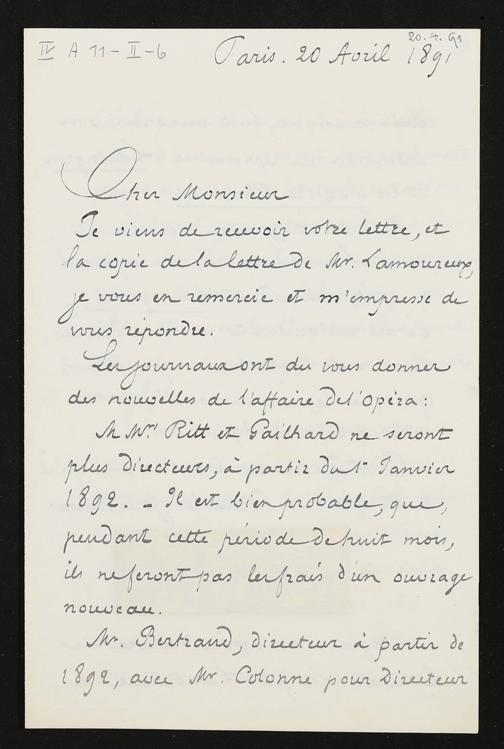 IV A 11-II-6
20.4.91
Paris. 20 Avril 1891
Cher Monsieur
Je viens de recevoir votre lettre, et
la copie de la lettre de Mr. Lamoureux,
je vous en remercie et m'empresse de
vous répondre.
Les journaux ont du vous donner
des nouvelles de l'affaire de l'Opéra:
M Mrs Ritt et Gailhard ne seront
plus directeurs, à partir du 1er Janvier
1892. - Il est bien probable, que,
pendant cette période de huit mois,
ils ne feront pas les frais d'un ouvrage
nouveau.
Mr. Bertrand, directeur à partir de
1892, avec Mr. Colonne pour Directeur